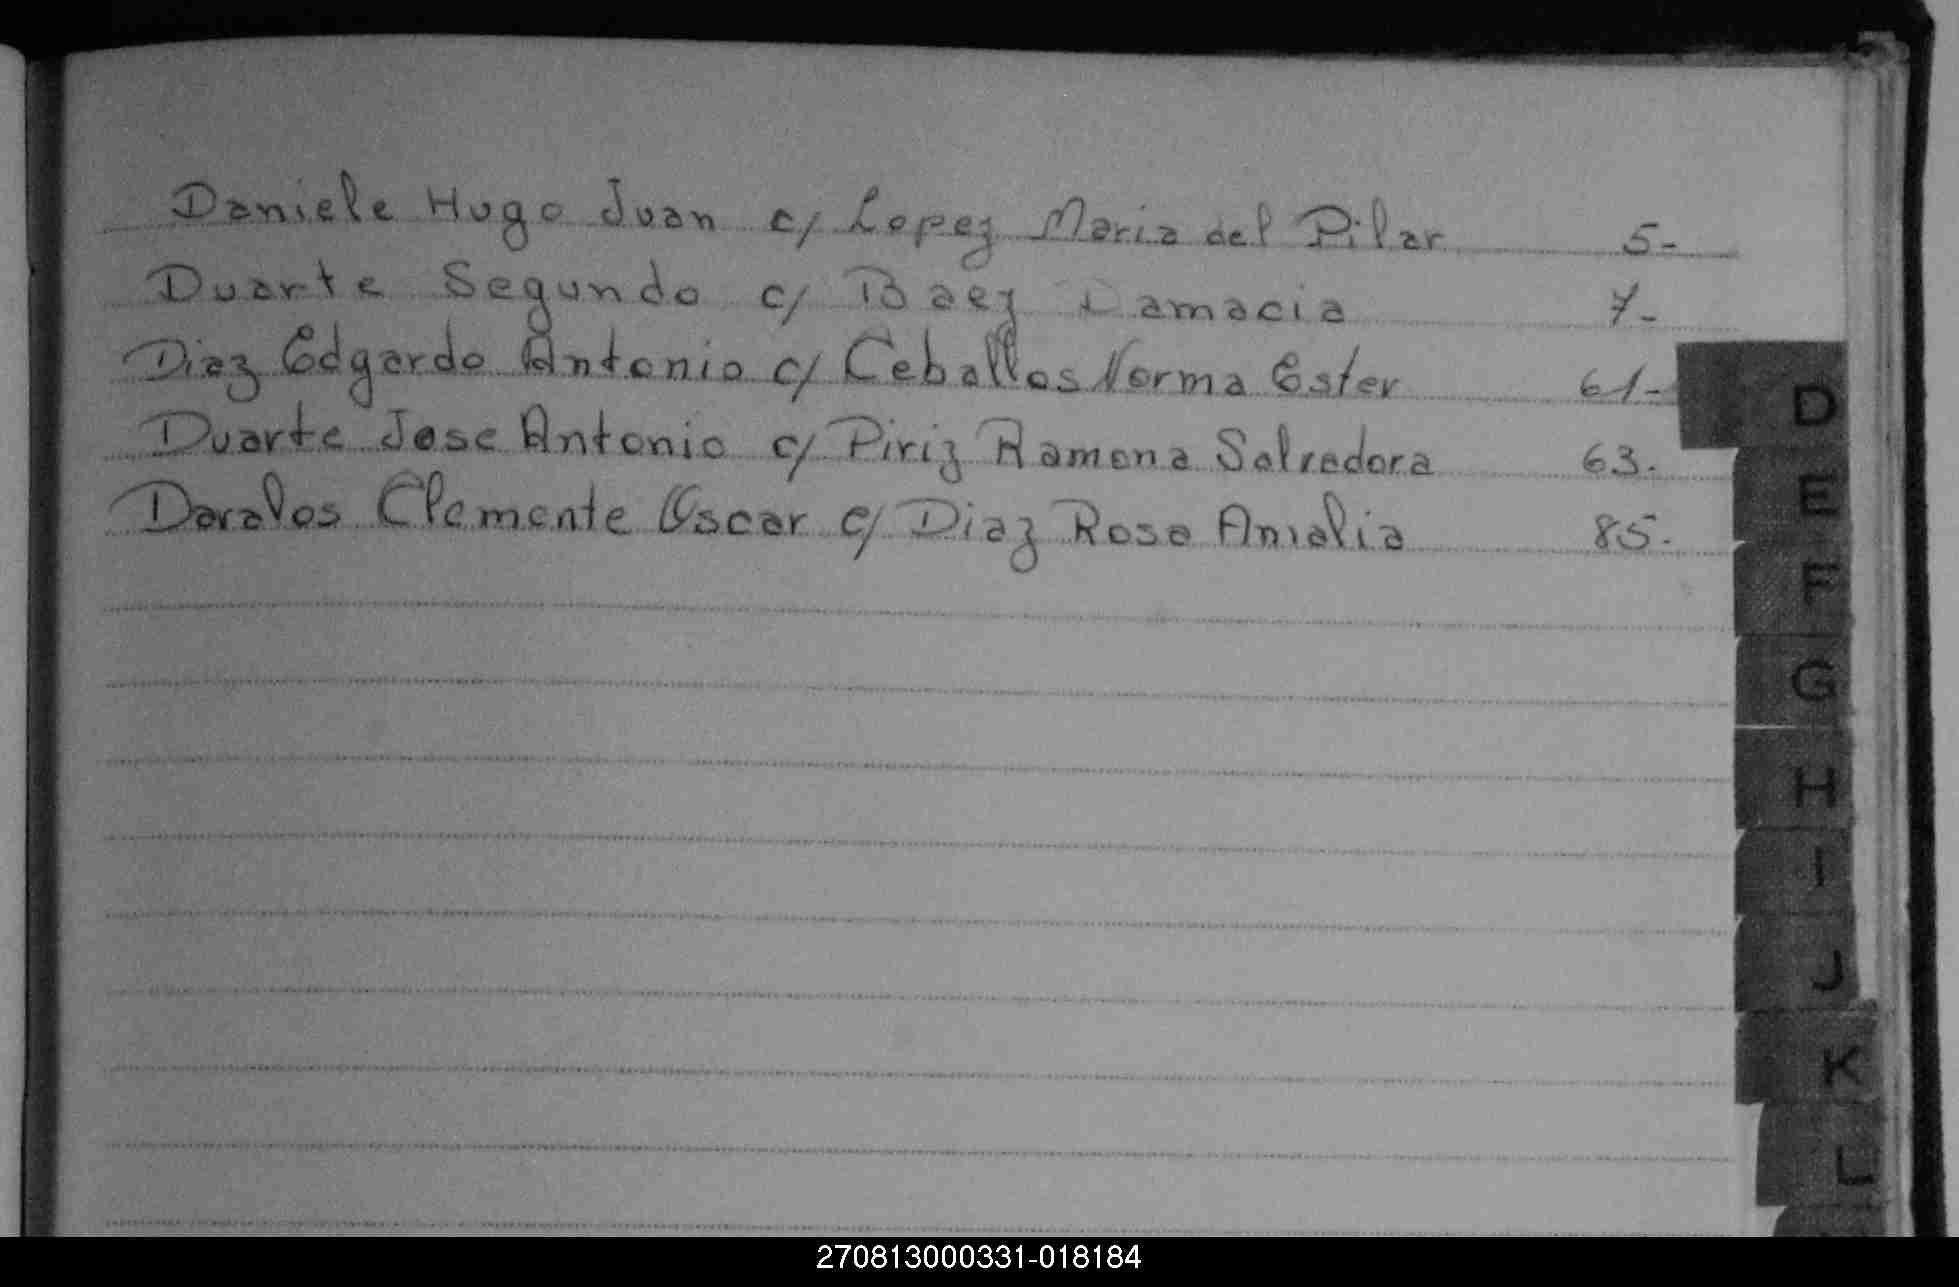 Daniele Hugo Juan c/ Lopez Maria del Pilar 5-
Duarte Segundo c/ Baez Damacia 7-
Diaz Edgardo Antonio c/ Ceballos Norma Ester 61-
Duarte Jose Antonio c/ Piriz Ramona Salvadora 63.
Davalos Clemente Oscar c/ Diaz Rosa Amalia 85.
D
E
F
G
H
I
J
K
L
270813000331-018184